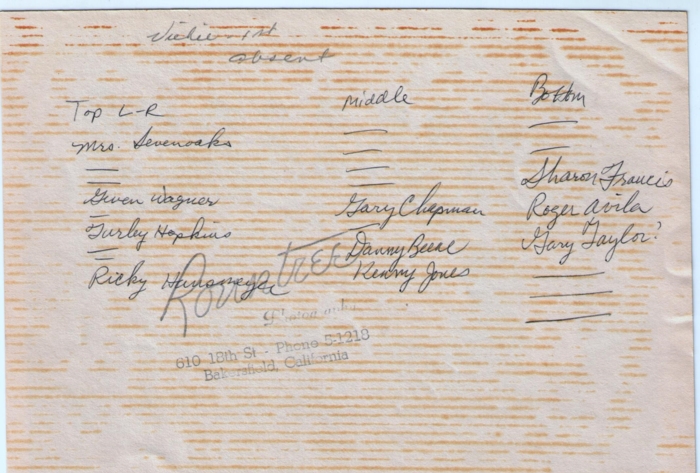 Vickie 1st
absent
Top L-R
Mrs. Sevenoaks
Gwen Wagner
Turley Hopkins
Ricky
Middle
Gary Chapman
Danny Beene
Kenny Jones
Bottom
Sharon Francis
Roger Avila
Gary Taylor?
Rowntree
610 18th St - Phone 5-1218
Bakersfield, California